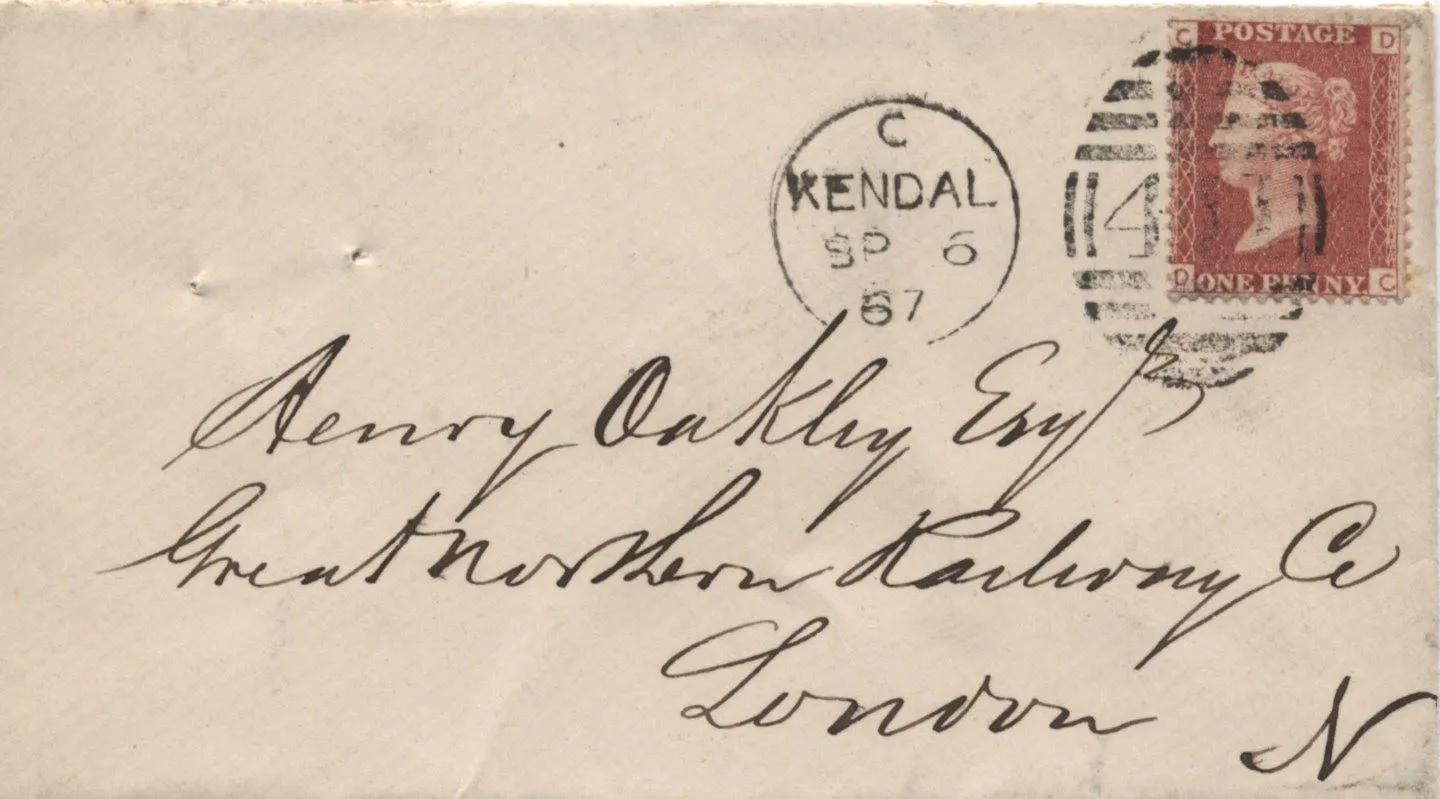 C POSTAGE D
C
KENDAL
SP 6
67
D ONE PENNY C
Henry Oakley Esqr
Great Northern Railway Co
London
N